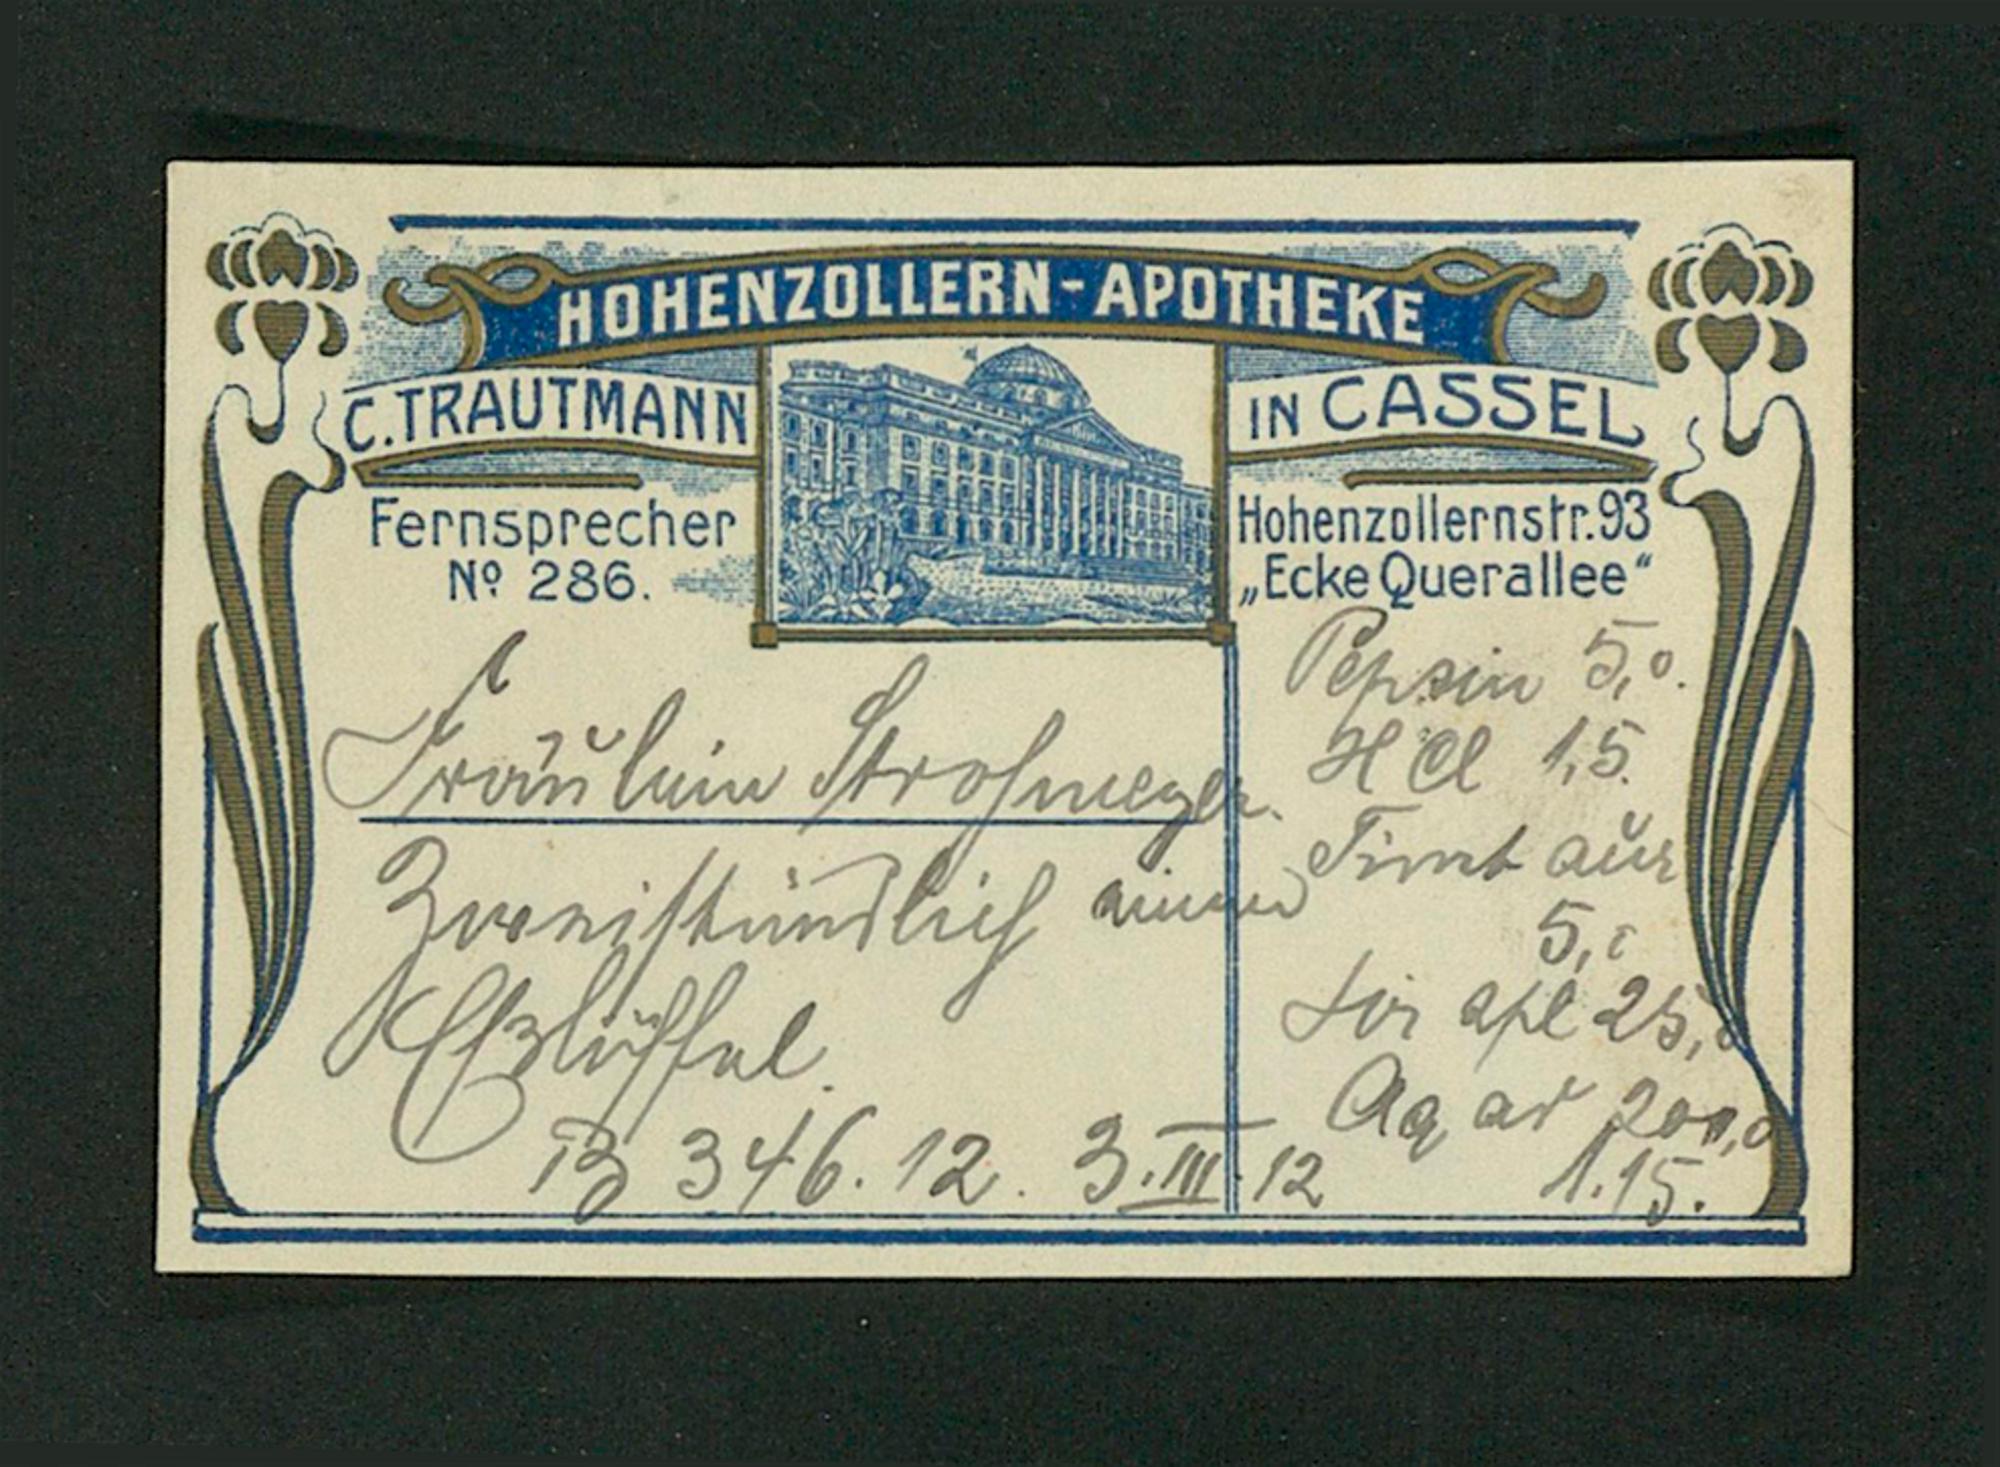 HOHENZOLLERN-APOTHEKE
C. TRAUTMANN
IN CASSEL
Fernsprecher
Nº 286.
Hohenzollernstr. 93
„Ecke Querallee“
Fräulein Strohmeyer.
Zweistündlich einen
Eßlöffel.
346.12. 3.III.12
Pepsin 5,0.
HCl 1,5.
Tinct aur
5,0
Sir spl 25,0
Aq ad 200,0
1.15.